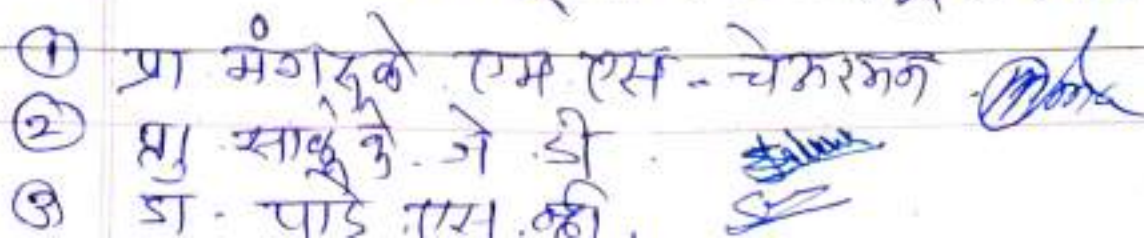 ① प्रा मंगरूळे एम एस - चेअरमन
② प्रा साळुंके जे डी
③ डॉ. पाडे एस. व्ही.